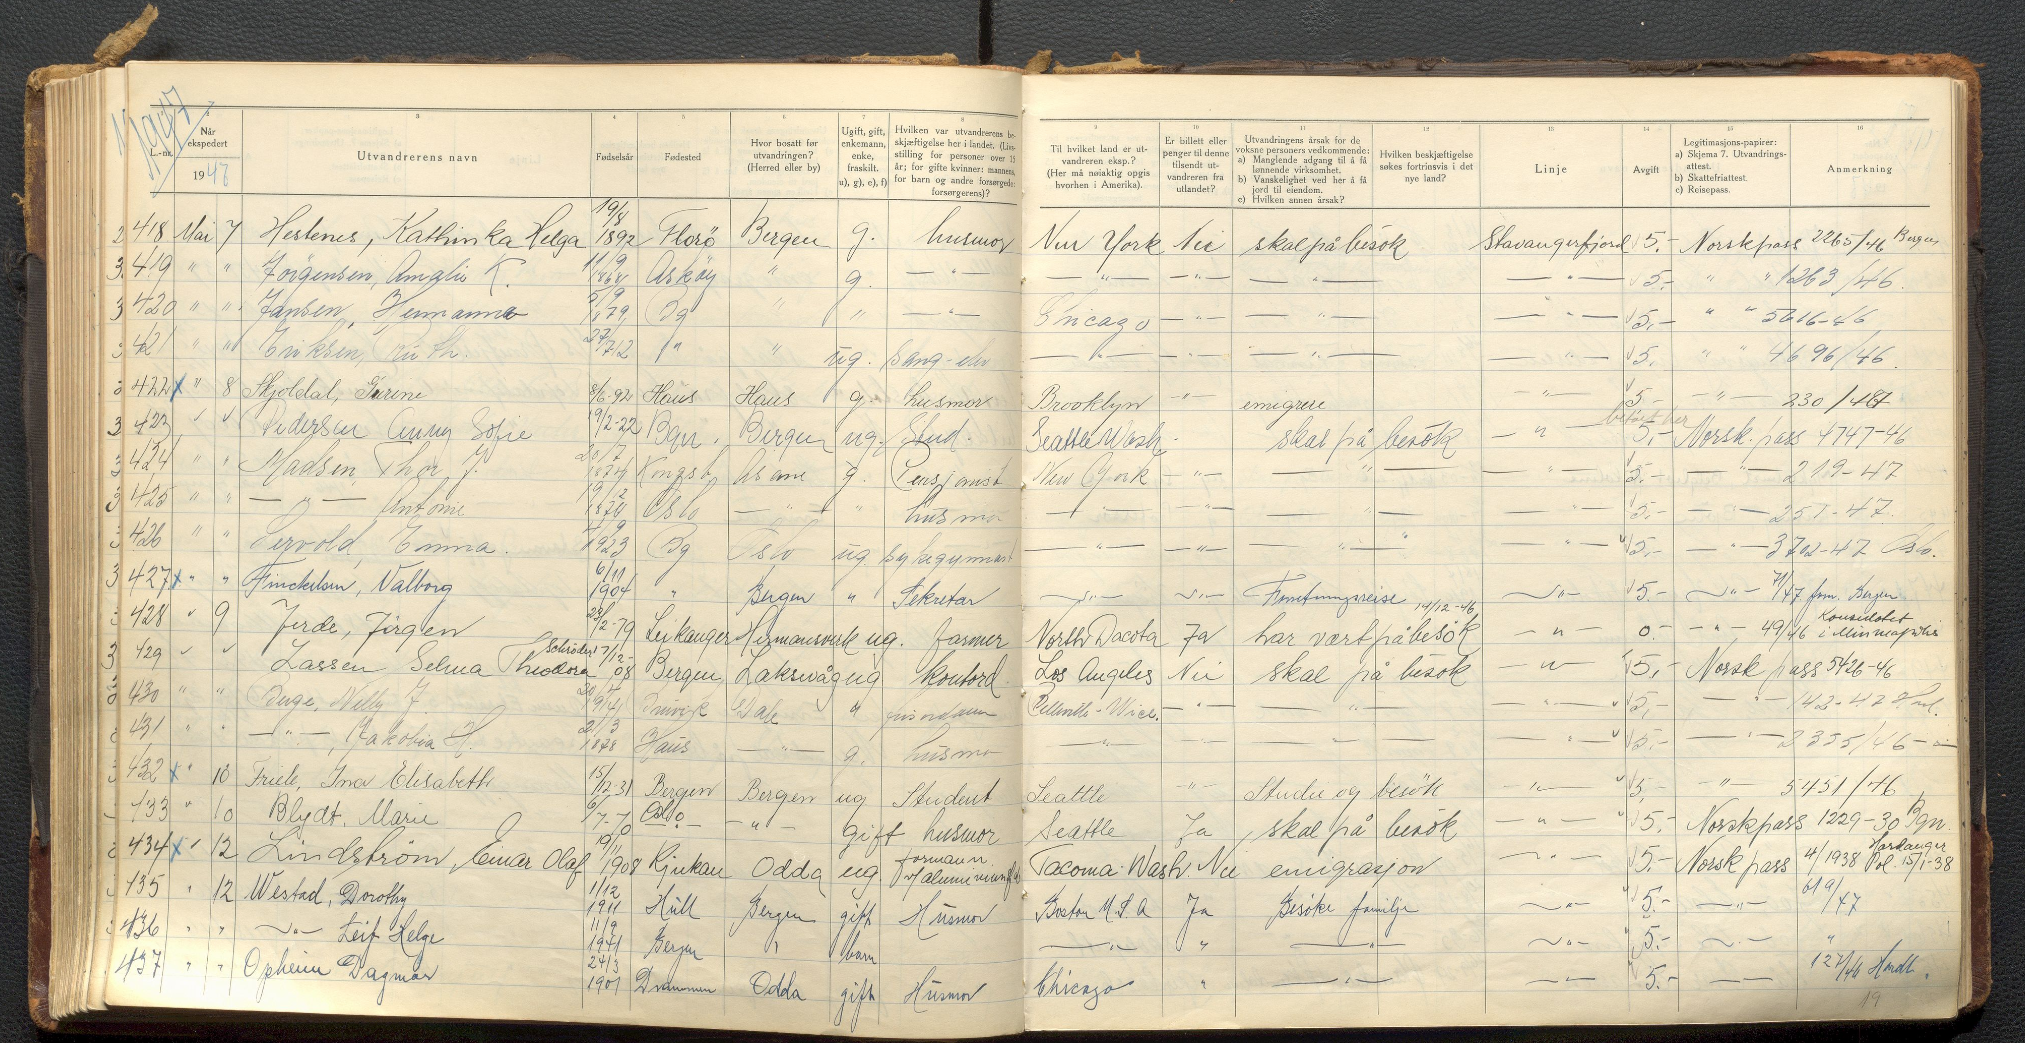 1947
L.-nr.
Når ekspedert
1947
Utvandrerens navn
Fødselsår
Fødested
Hvor bosatt før utvandringen? (Herred eller by)
Ugift, gift, enkemann, enke, fraskilt. u), g), e), f)
Hvilken var utvandrerens beskjæftigelse her i landet. (Livsstilling for personer over 15 år; for gifte kvinner: mannens, for barn og andre forsørgede: forsørgerens)?
Til hvilket land er utvandreren eksp.? (Her må nøiaktig opgis hvorhen i Amerika).
Er billett eller penger til denne tilsendt utvandreren fra utlandet?
Utvandringens årsak for de voksne personers vedkommende:
a) Manglende adgang til å få lønnende virksomhet.
b) Vanskelighet ved her å få jord til eiendom.
c) Hvilken annen årsak?
Hvilken beskjæftigelse søkes fortrinsvis i det nye land?
Linje
Avgift
Legitimasjons-papirer:
a) Skjema 7. Utvandrings-attest.
b) Skattefriattest.
c) Reisepass.
Anmerkning
418 Mai 7 Hestenes, Kathinka Helga 19/8 1892 Florö Bergen g. husmor New York Nei skal på besök Stavangerfjord 5.- Norsk pass 2265/46 Bergen
419 " " Jörgensen, Amalie K. 11/9 1868 Asköy " g. — " — " — " — 5.- " " 1263/46.
420 " " Jansen, Hermanna 5/9 79 Bg " " — " — Chicago — " — 5.- " " 5616-46
421 " " Eriksen, Ruth. 27/7 12 " " ug. Sang-elev — " — 5.- " " 4696/46.
422 x " 8 Skjoldal, Gurine 8/6-92 Haus Haus g. husmor Brooklyn — " — emigrere — " — 5.- — " — 230/47
423 " " Pedersen Anny Sofie 19/2-22 Bgn. Bergen ug. Stud. Seattle Wash. skal på besök — " — 5.- Norsk. pass 4747-46
424 " " Madsen, Thor J. 20/7 1874 Kongsb. Åsane g. Pensjonist New York — " — 5.- — " — 219-47
425 " " — " — Antonie 19/2 1874 Oslo — " — " husmor — " — 5.- — " — 251-47.
426 " " Emma. 4/9 1923 Bg Oslo ug sykegymnast — " — 5.- — " — 3702-47 Oslo.
427 x " " Valborg 6/11 1904 " Bergen " Sekretær — " — Forretningsreise — " — 5.- — " — 71/47 fom. Bergen
428 " 9 Jerde, Jörgen 23/2-79 Leikanger Hermansverk ug. farmer North Dacota Ja har vært på besök 14/12-46 — " — 0.- — " — 49/46 Konsulatet i Minneapolis
429 " " Lassen Selma Theodora Schröder 17/12-08 Bergen Laksevåg ug kontord. Los Angeles Nei skal på besök — " — 5.- Norsk pass 5426-46
430 " " Berge, Nelly J. 20/4 1914 Dale " — " — 5.- — " — 142-47
431 " " — " — Jakobia H. 21/3 1878 Haus — " — g. husmor — " — 5.- — " — 2355/46
432 x " 10 Friele, Ina Elisabeth 15/12-31 Bergen Bergen ug Student Seattle — " — Studie og besök — " — 5.- — " — 5451/46
433 " 10 Blydt, Marie 6/7-70 Oslo — " — gift husmor Seattle Ja skal på besök — " — 5.- Norsk pass 1229-30 Bgn.
434 x " 12 Lindström, Einar Olaf 19/11 1908 Rjukan Odda ug formann Tacoma Wash. Nei emigrasjon — " — 5.- Norsk pass 4/1938 Hardanger Pol. 15/1-38
435 " 12 Westad, Dorothy 11/12 1911 Hull Bergen gift Husmor Boston U.S.A Ja Besöke familje — " — 5.- — " — 619/47
436 " " — " — Leif Helge 11/9 1941 Bergen " barn — " — " — " — 5.- — " — "
437 " " Opheim Dagmar 24/3 1901 Drammen Odda gift Husmor Chicago " — " — 5.- — " — 127/46 Hardl.
19